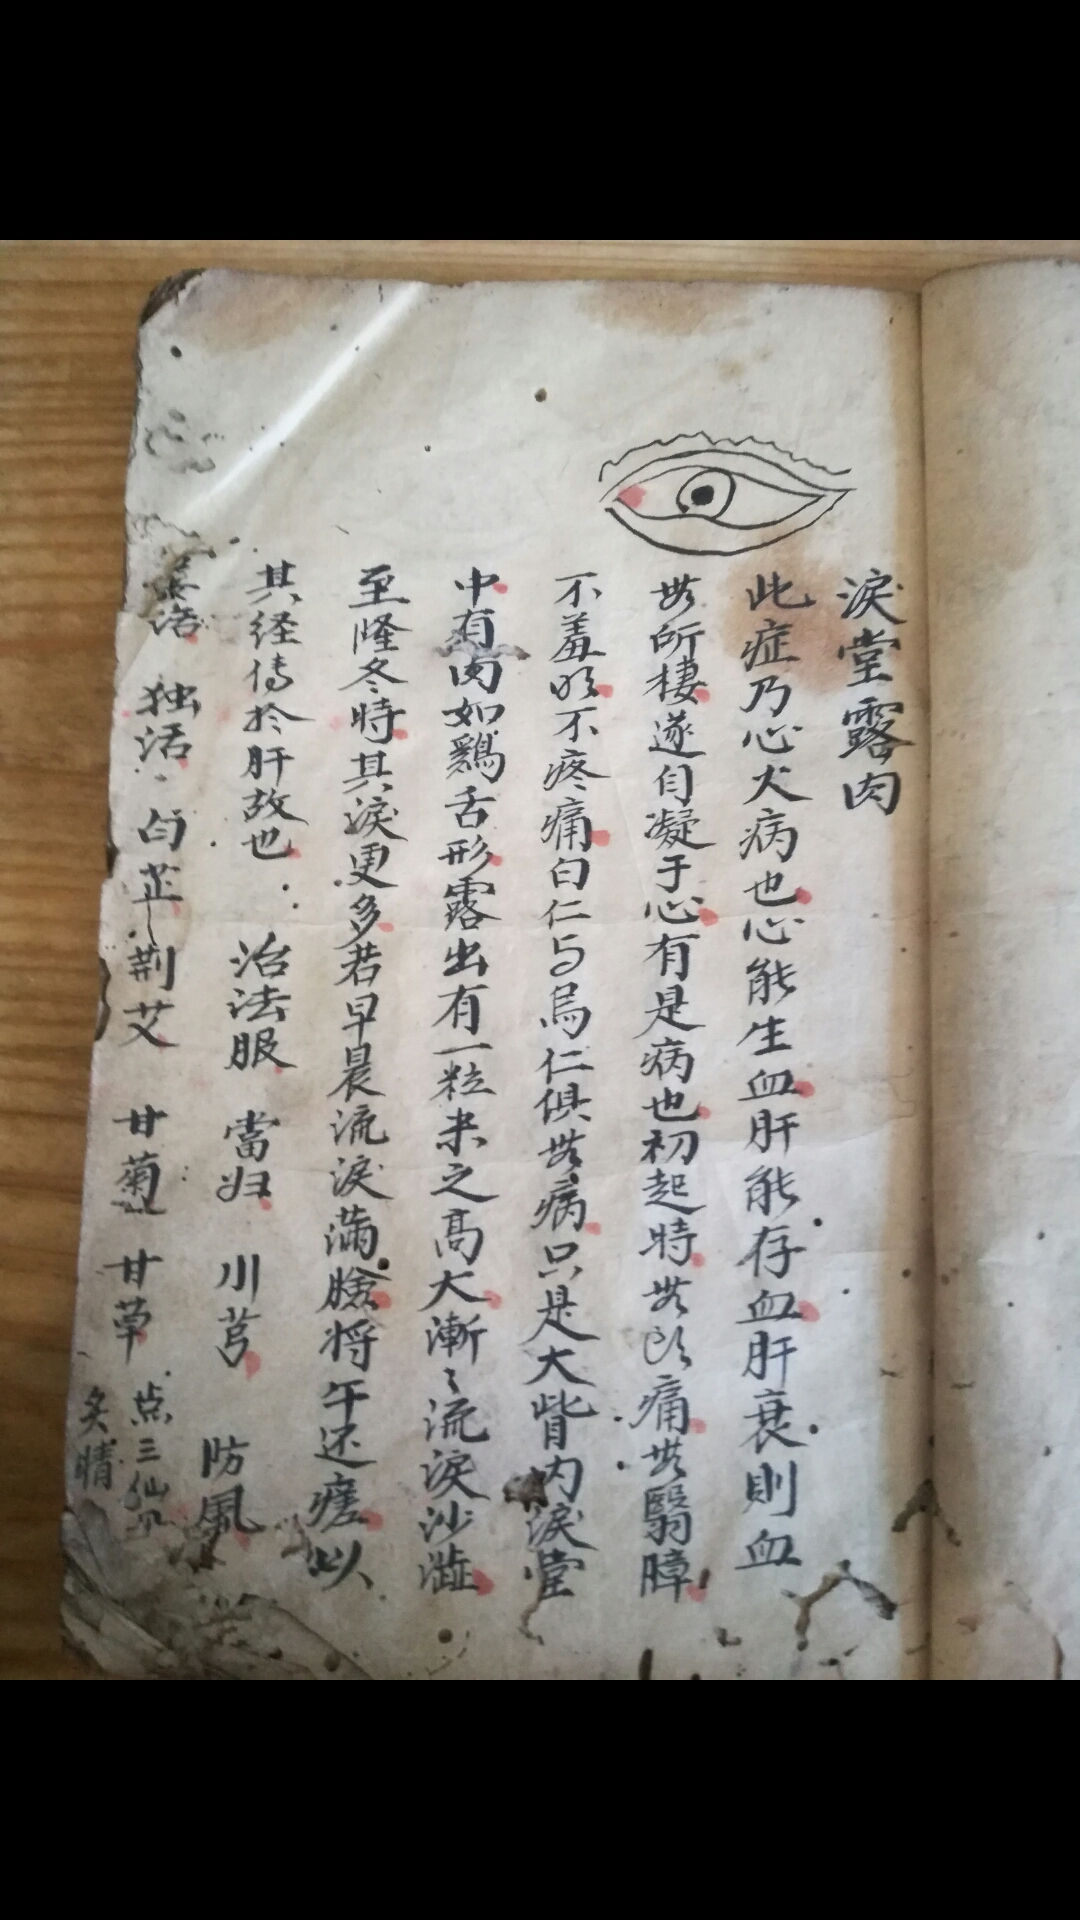 淚堂露肉
此症乃心火病也心能生血肝能存血肝衰則血
無所棲遂自凝于心有是病也初起時無头痛無翳瞕
不羞明不疼痛白仁与烏仁俱無病只是大眥内淚堂
中有肉如鷄舌形露出有一粒米之高大漸〻流淚沙澁
至隆冬時其淚更多若早晨流淚滿臉将午还瘥以
其経傳於肝故也 治法服 當归 川芎 防風
活 独活 白芷 荆艾 甘菊 甘草 点三仙
炙睛